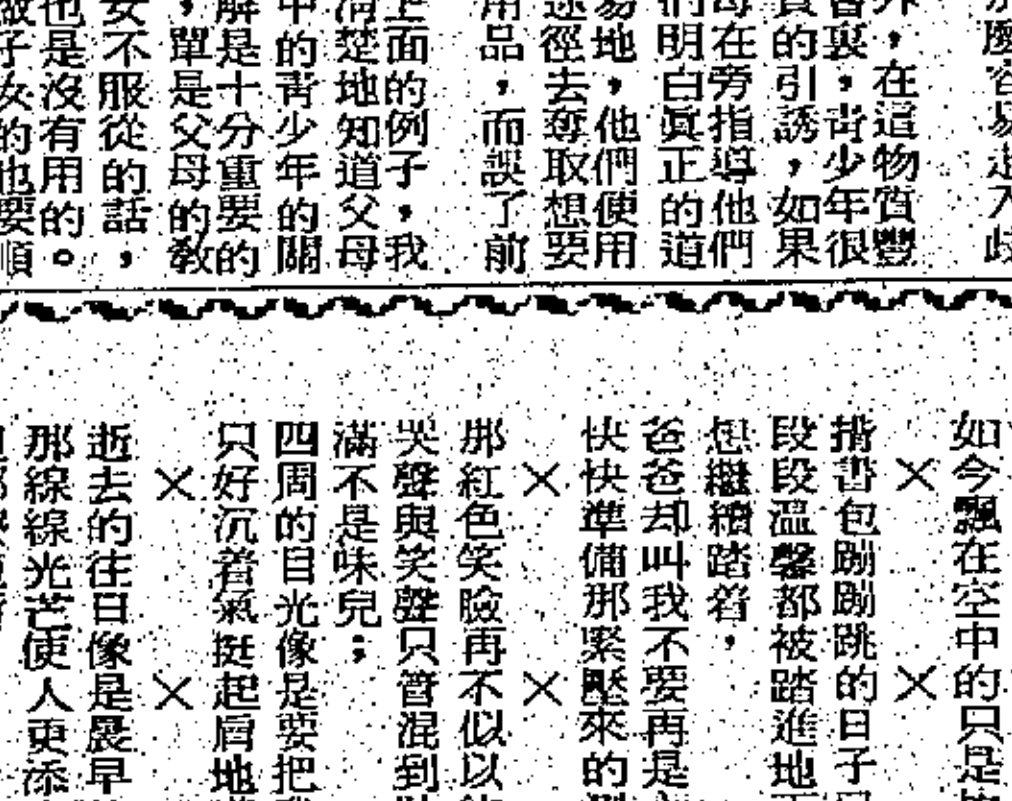 麼容易走入歧
外，在這物質豐
裏，青少年很
的引誘，如果
母在旁指導他們
們明白眞正的道
易地，他們便用
速徑去奪取想要
用品，而誤了前
上面的例子，我
清楚地知道父母
中的青少年的關
解是十分重要的
，單是父母的敎
女不服從的話，
也是沒有用的。
做子女的也要順
如今飄在空中的只是
×　　×
揹書包蹦蹦跳的日子
段段溫馨都被踏進地
想繼續踏着，
爸爸却叫我不要再是
快快準備那緊壓來的
×　　×
那紅色笑臉再不似以
哭聲與笑聲只管混到
滿不是味兒；
四周的目光像是要把
只好沉着氣挺起眉地
×　　×
逝去的往日像是晨早
那線線光芒使人更添